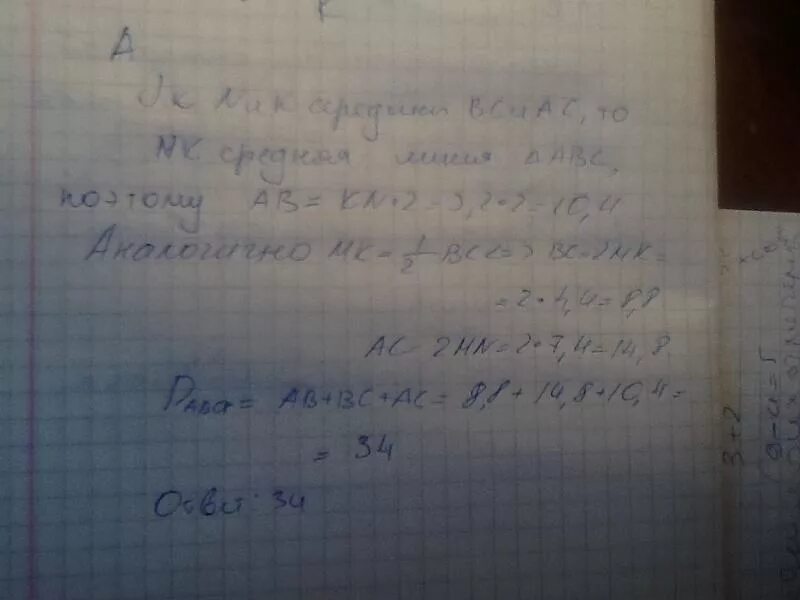 A
Тк N и K середины BC и AC, то
NK средняя линия ΔABC,
поэтому AB = KN·2 = 5,2·2 = 10,4
Аналогично MK = 1/2 BC <=> BC = 2MK =
= 2·4,4 = 8,8
AC = 2MN = 2·7,4 = 14,8
P = AB+BC+AC = 8,8+14,8+10,4 =
= 34
Ответ: 34
3+2